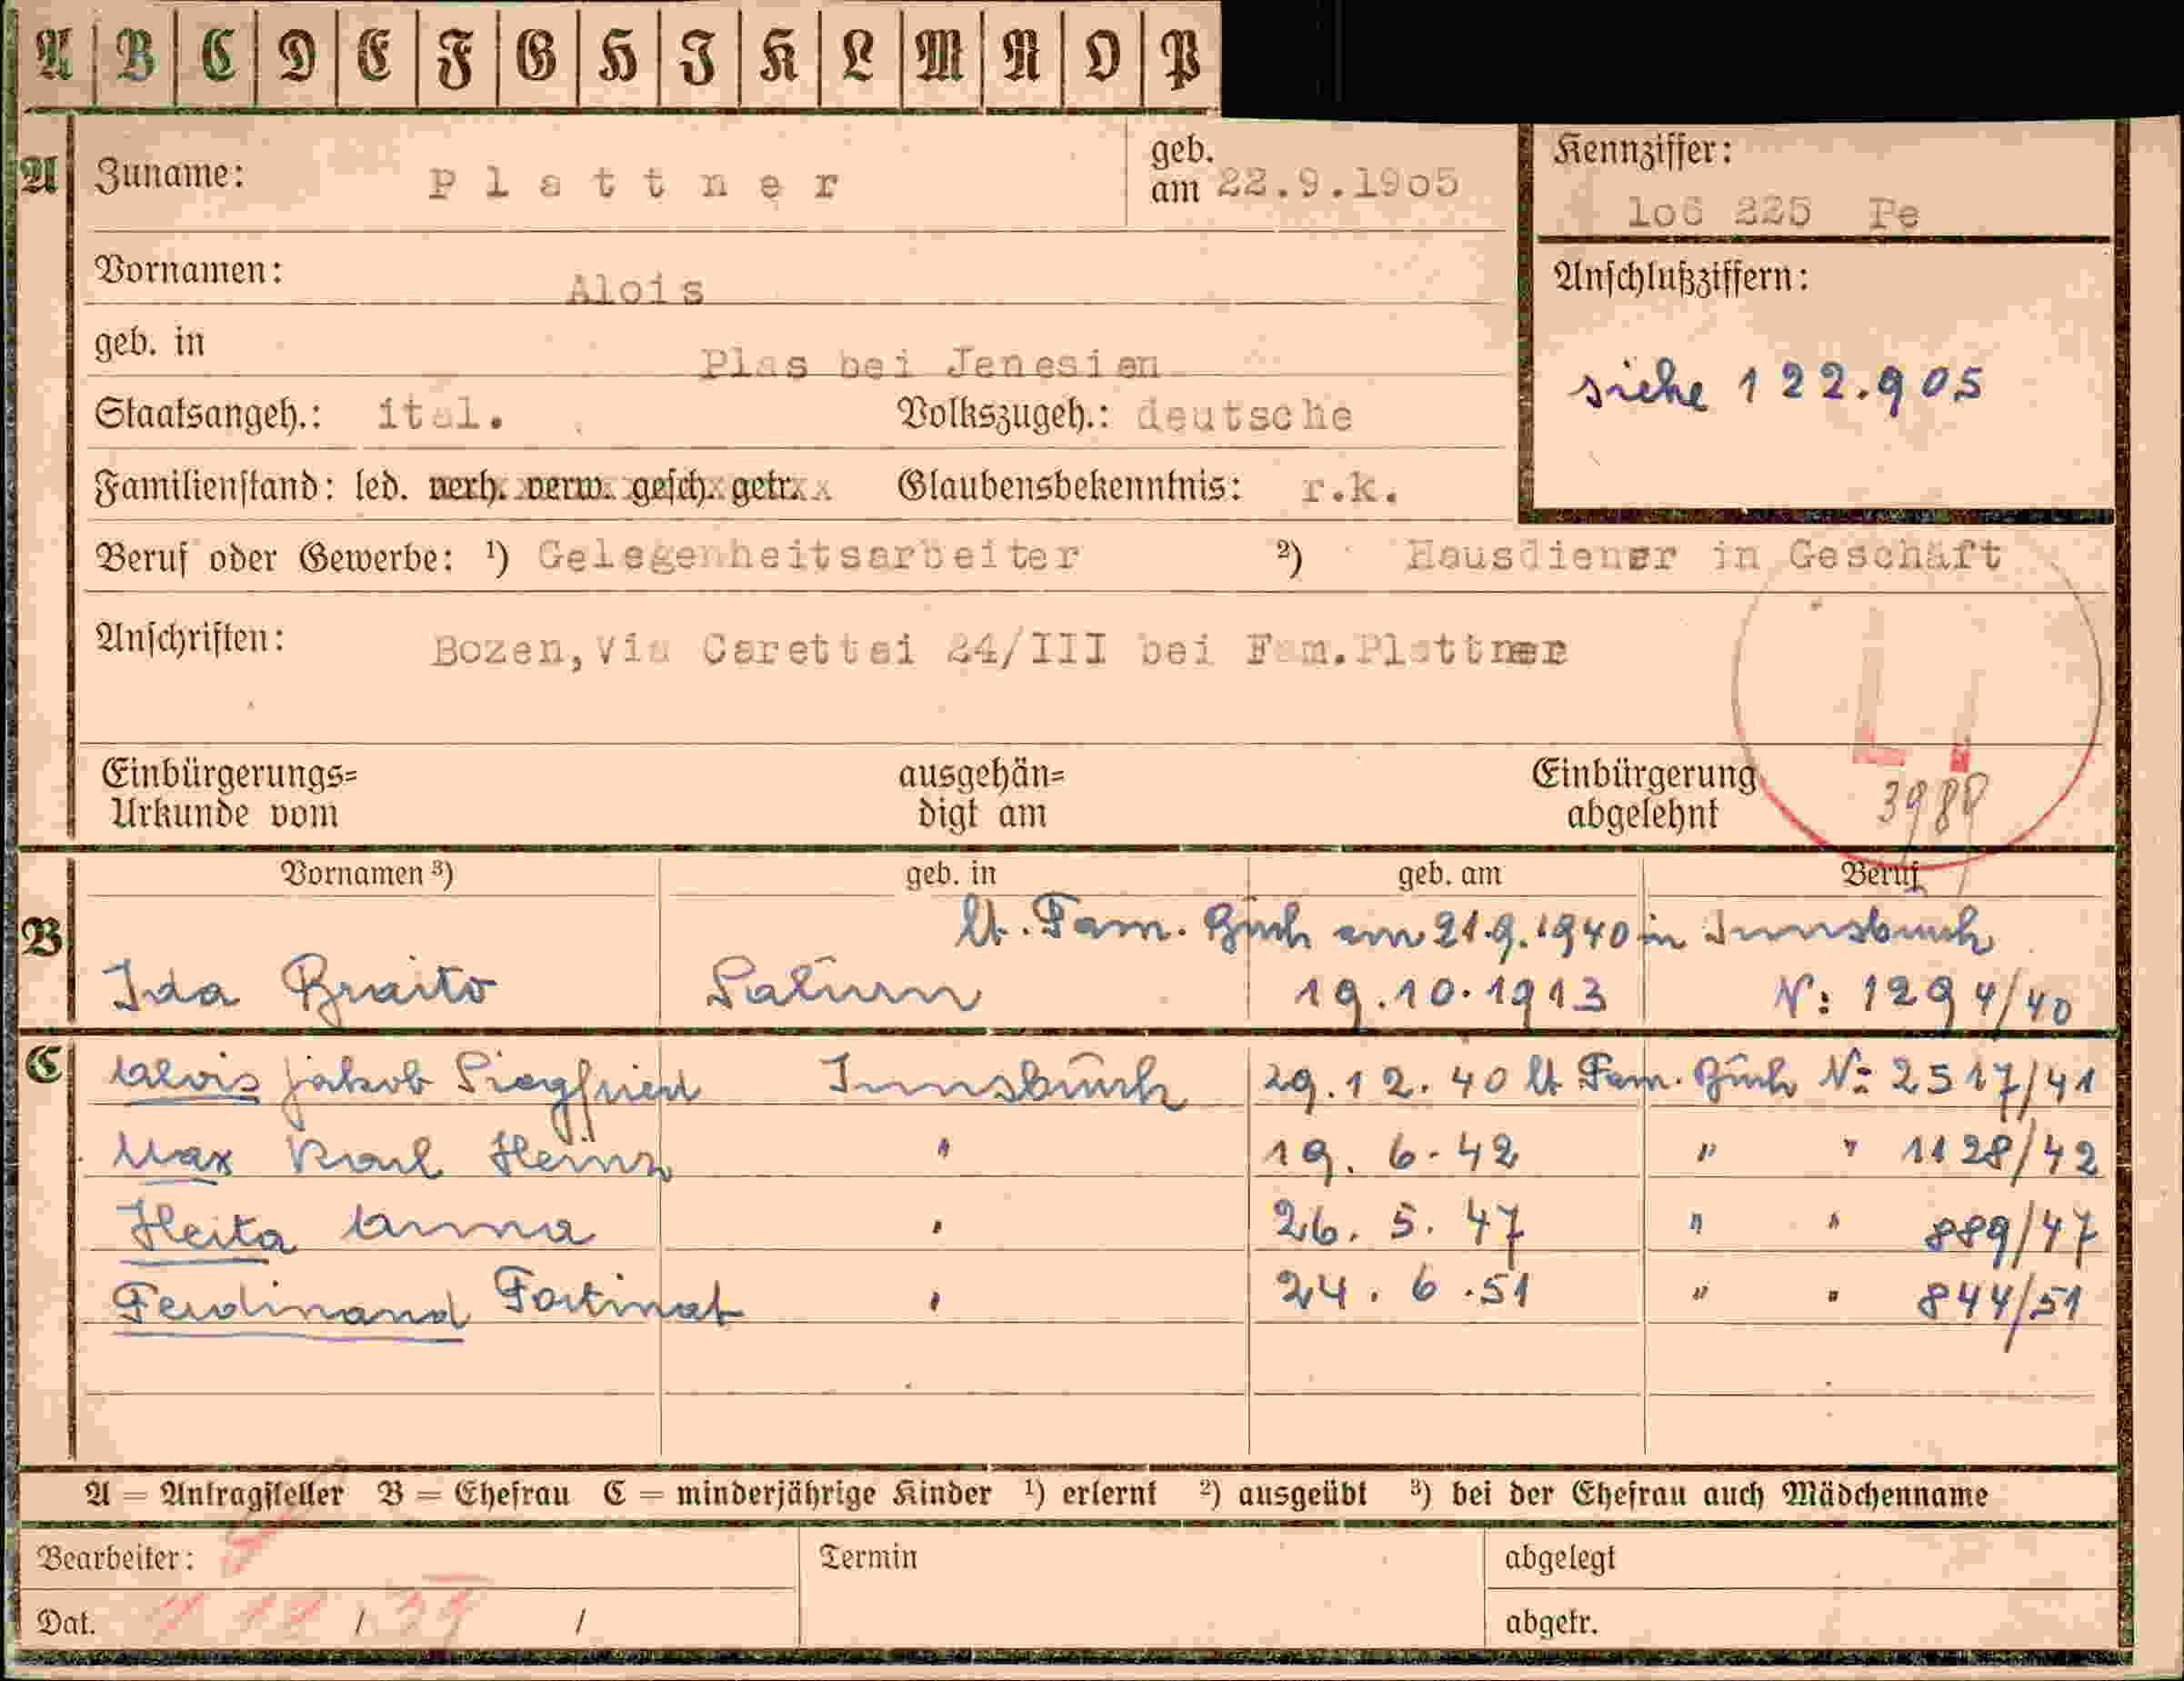 A B C D E F G H I K L M N O P
A Zuname: Plattner geb. am 22.9.1905
Kennziffer: 1o6 225 Pe
Vornamen: Alois
Anschlußziffern:
siehe 122.905
geb. in Plas bei Jenesien
Staatsangeh.: ital. Volkszugeh.: deutsche
Familienstand: led. verh. verw. gesch. getr. Glaubensbekenntnis: r.k.
Beruf oder Gewerbe: ¹) Gelegenheitsarbeiter ²) Hausdiener in Geschäft
Anschriften: Bozen,Via Carettai 24/III bei Fam.Plattner
Einbürgerungs= ausgehän= Einbürgerung
Urkunde vom digt am abgelehnt
Vornamen ³) geb. in geb. am Beruf
lt. Fam. Buch am 21.9.1940 in Innsbruck
B Ida Braito Salurn 19.10.1913 N: 1294/40
C Alois Jakob Siegfried Innsbruck 29.12.40 lt Fam. Buch N: 2517/41
Max Karl Heinz " 19. 6. 42 " " 1128/42
Heita Anna " 26. 5. 47 " " 889/47
Ferdinand Fortinat " 24. 6. 51 " " 844/51
A = Antragsteller B = Ehefrau C = minderjährige Kinder ¹) erlernt ²) ausgeübt ³) bei der Ehefrau auch Mädchenname
Bearbeiter: Termin abgelegt
Dat. / / abgetr.